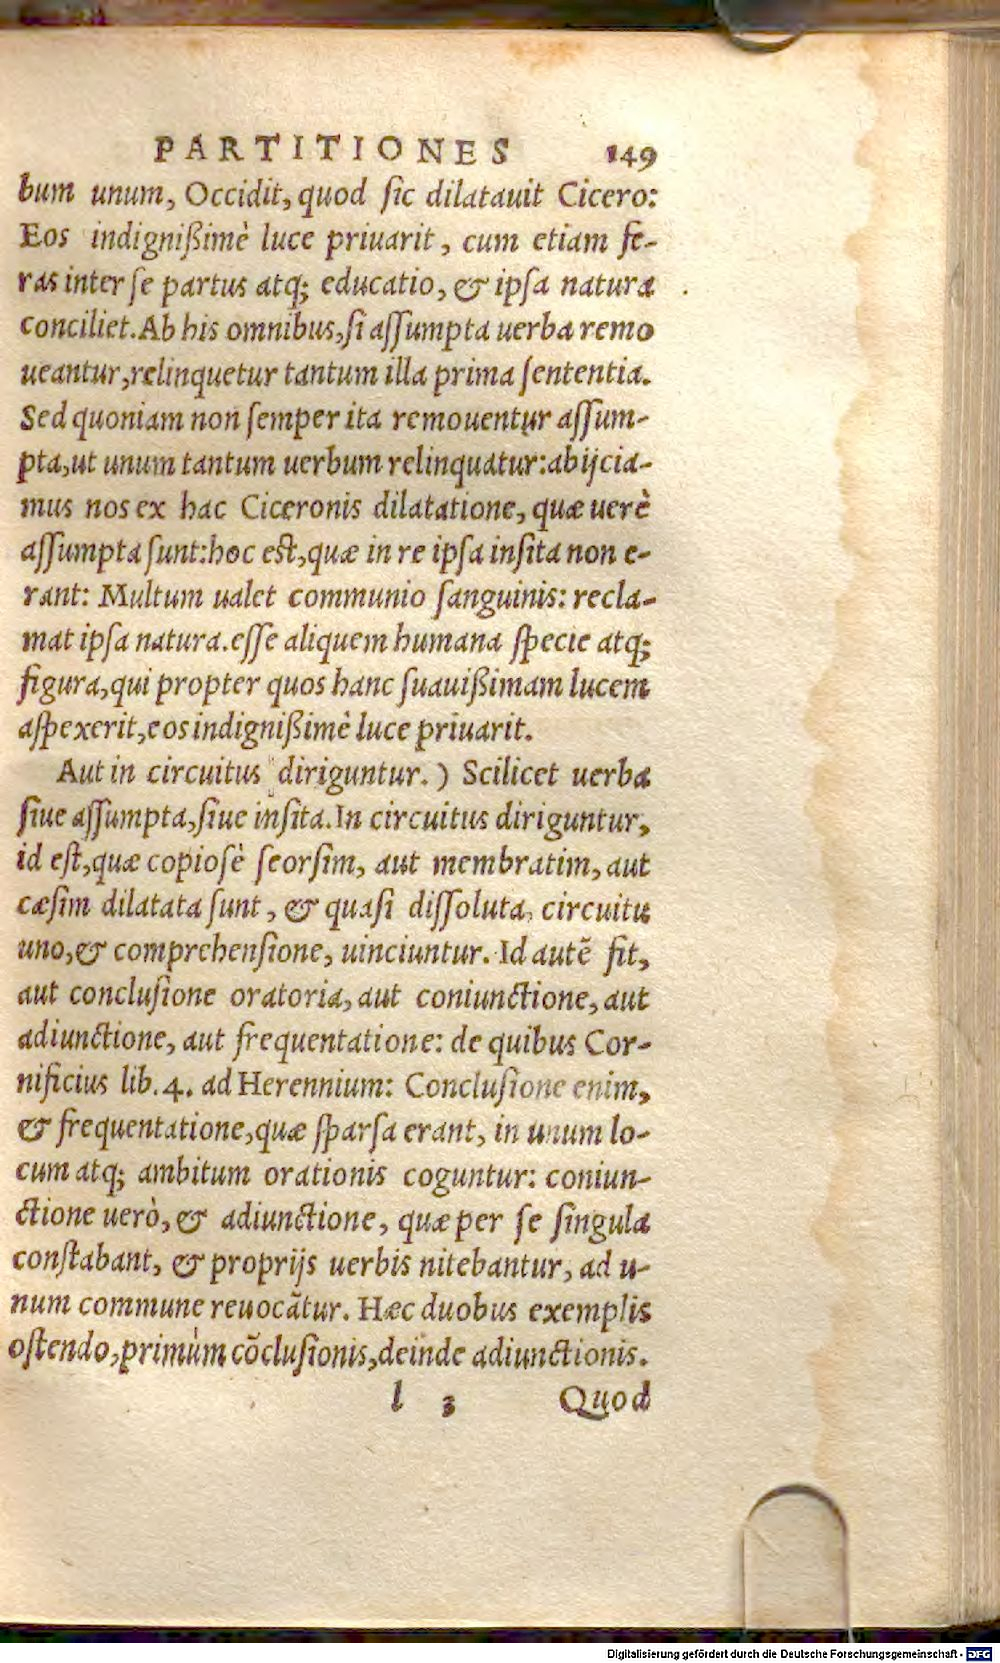 PARTITIONES 149
bum unum, Occidit, quod ſic dilatauit Cicero:
Eos indignißimè luce priuarit, cum etiam fe-
ras inter ſe partus atq; educatio, & ipſa natura
conciliet. Ab his omnibus, ſi aſſumpta uerba remo
ueantur, relinquetur tantum illa prima ſententia.
Sed quoniam non ſemper ita remouentur aſſum-
pta, ut unum tantum uerbum relinquatur: abijcia-
mus nos ex hac Ciceronis dilatatione, quæ uerè
aſſumpta ſunt: hoc eſt, quæ in re ipſa inſita non e-
rant: Multum ualet communio ſanguinis: recla-
mat ipſa natura. eſſe aliquem humana ſpecie atq;
figura, qui propter quos hanc ſuauißimam lucem
aſpexerit, eos indignißimè luce priuarit.
Aut in circuitus diriguntur.) Scilicet uerba
ſiue aſſumpta, ſiue inſita. In circuitus diriguntur,
id eſt, quæ copioſè ſeorſim, aut membratim, aut
cæſim dilatata ſunt, & quaſi diſſoluta, circuitu
uno, & comprehenſione, uinciuntur. Id autē fit,
aut concluſione oratoria, aut coniunctione, aut
adiunctione, aut frequentatione: de quibus Cor-
nificius lib. 4. ad Herennium: Concluſione enim,
& frequentatione, quæ ſparſa erant, in unum lo-
cum atq; ambitum orationis coguntur: coniun-
ctione uerò, & adiunctione, quæ per ſe ſingula
conſtabant, & proprijs uerbis nitebantur, ad u-
num commune reuocātur. Hæc duobus exemplis
oſtendo, primùm cōcluſionis, deinde adiunctionis.
l 3 Quod
Digitalisierung gefördert durch die Deutsche Forschungsgemeinschaft - DFG